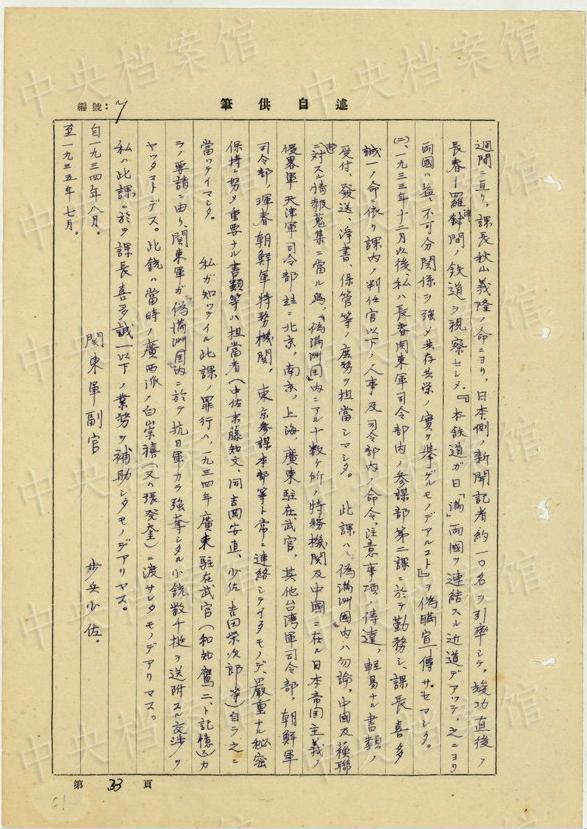 述自供筆
編號:7
週間ニ亘リ、課長秋山義隆ノ命ニヨリ、日本側ノ新聞記者約一〇名ヲ引率シテ、竣功直後ノ
長春—羅津間ノ鉄道ヲ視察セシメ、『本鉄道ガ日「満」両國ヲ連結スル近道デアッテ、之ニヨリ
両國ハ益々不可分関係ヲ強メ共存共栄ノ實ヲ挙ゲルモノデアルコト』ヲ偽瞞宣傳サセマシタ。
(二)、一九三三年十二月以後、私ハ長春関東軍司令部内ノ参謀部第二課ニ於テ勤務シ、課長喜多
誠一ノ命ニ依リ課内ノ判任官以下ノ人事、及司令部内ノ命令、注意事項ノ傳達、軽易ナル書類ノ
受付、発送、浄書、保管等ノ庶務ヲ担當シマシタ。 此課ハ、偽満洲國内ハ勿論、中國及蘓聯
ニ対スル情報蒐集ニ當ル為、「偽満洲國」内ニアル十数ヶ所ノ特務機関及中國ニ在ル日本帝国主義ノ
侵畧軍天津軍司令部、駐在北京、南京、上海、廣東駐在武官、其他台湾軍司令部、朝鮮軍
司令部、琿春朝鮮軍特務機関、東京参謀本部等ト常ニ連絡シテイタモノデ、嚴重ナル秘密
保持ニ努メ重要ナル書類等ハ担当者(中佐斉藤知文、同吉岡安直、少佐吉田栄次郎等)自ラ之ニ
當ッテイマシタ。 私ガ知ッテイル此課ノ罪行ハ、一九三四年廣東駐在武官(和知鷹二、ト記憶)カ
ラノ要請ニ由リ関東軍ガ「偽満洲国」内ニ於テ抗日軍カラ強奪シタル小銃数千挺ヲ送附スル交渉ヲ
ヤッタコトデス。此銃ハ當時ノ廣西派ノ白崇禧(又ハ張発奎)ニ渡サレタモノデアリマス。
私ハ此課ニ於テ課長喜多誠一以下ノ業務ヲ補助シタモノデアリマス。
自一九三四年八月。
至一九三五年七月。
関東軍副官 歩兵少佐。
第33頁
61
中央档案馆